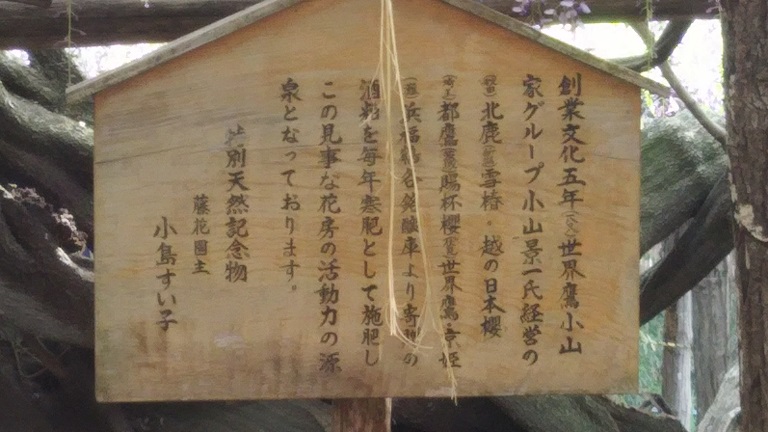 創業文化五年(一八〇八)世界鷹小山
家グループ小山景一氏経営の
北鹿 雪椿・越の日本櫻
都鷹 賜杯櫻 世界鷹・景姫
浜福鶴 各発酵庫より寄贈の
酒粕を毎年寒肥として施肥し
この見事な花房の活動力の源
泉となっております。
特別天然記念物
藤花園主
小島すい子